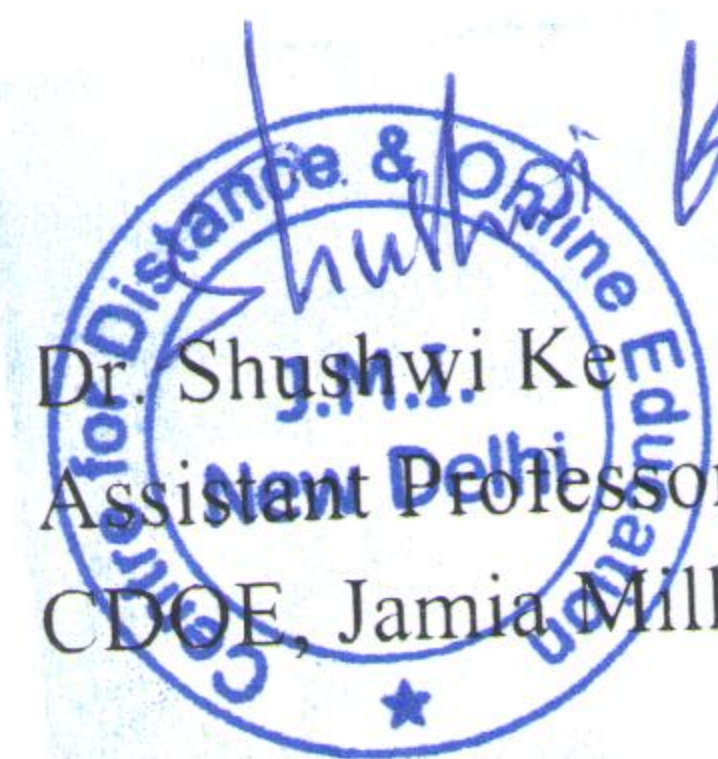 Centre for Distance & Online Education
J.M.I.
New Delhi
Dr. Shushwi Ke
Assistant Professor
CDOE, Jamia Mill